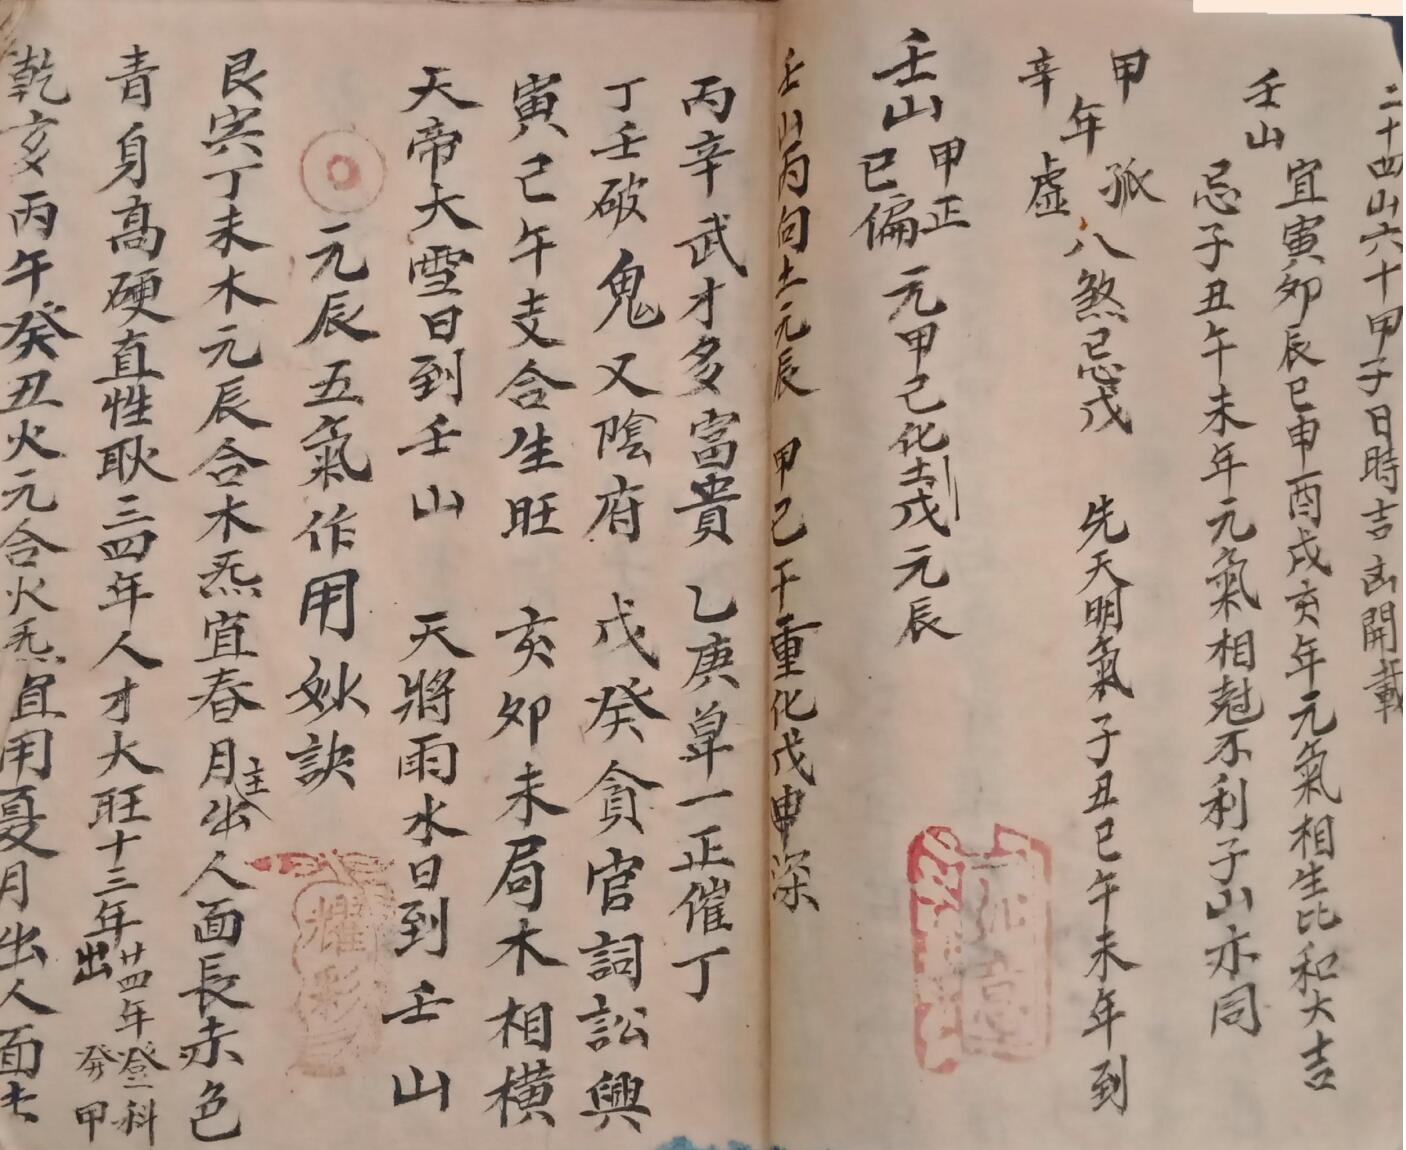 二十四山六十甲子日時吉凶開載
壬山
宜寅卯辰巳申酉戌亥年元氣相生比和大吉
忌子丑午未年元氣相尅不利子山亦同
甲孤
年
辛虛
八煞忌戊 先天明氣子丑巳午未年到
壬山
甲正
已偏
元甲己化土戊元辰
壬山丙向土元辰 甲己干重化戊申深
丙辛武才多富貴 乙庚单一正催丁
丁壬破鬼又陰府 戊癸貪官詞訟興
寅己午支合生旺 亥卯未局木相横
天帝大雪日到壬山 天將雨水日到壬山
元辰五氣作用妙訣
艮寅丁未木元辰合木炁宜春月主出人面長赤色
青身高硬直性耿三四年人才大旺十三年出廿四年登科發甲
乾亥丙午癸丑火元合火炁宜用夏月出人面七
耀彩